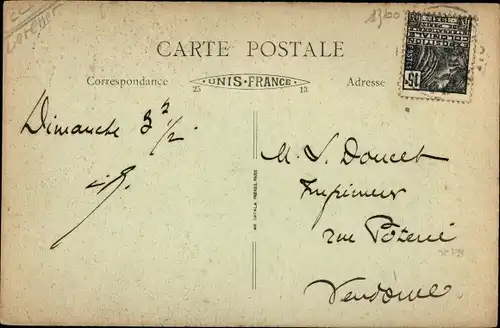 1300
CARTE POSTALE
Correspondance
UNIS-FRANCE
Adresse
25
13
Dimanche 3 ½
M. L. Doucet
Imprimeur
rue Poterie
Vendôme